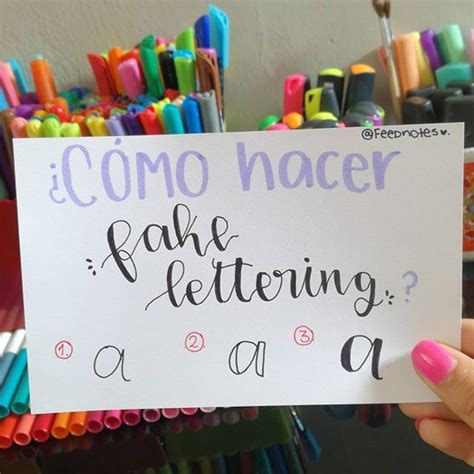 @Feednotes♥.
¿CÓMO hacer
fake
lettering?
1. a 2. a 3. a